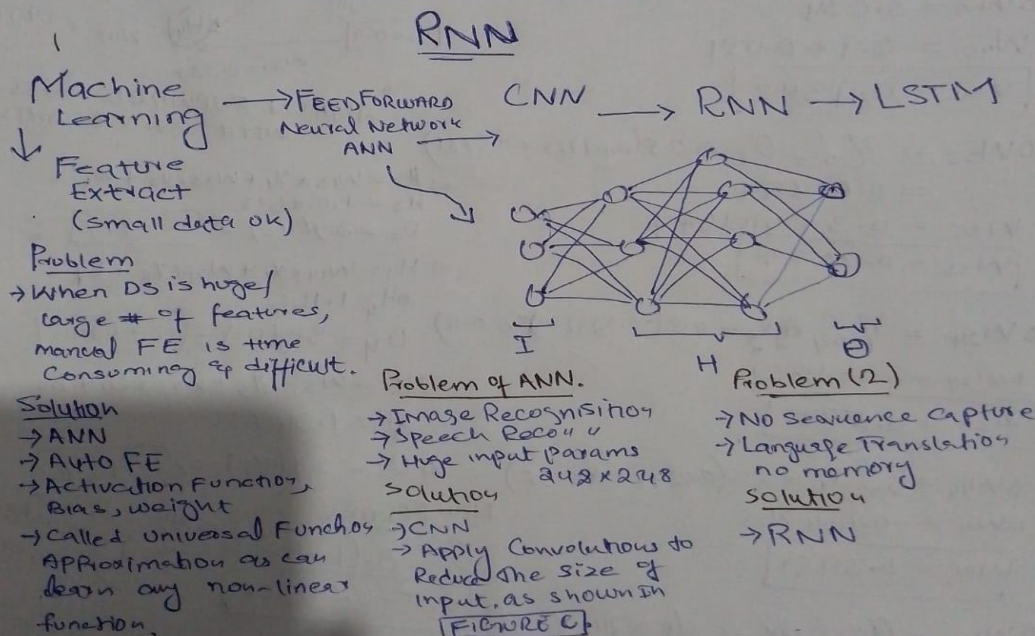 RNN
Machine Learning → FEEDFORWARD Neural Network ANN → CNN → RNN → LSTM
↓ Feature
Extract
(small data ok)
Problem
→ When DS is huge/
large # of features,
manual FE is time
consuming & difficult.
Solution
→ ANN
→ Auto FE
→ Activation Function,
Bias, weight
→ Called Universal Function
Approximation as can
learn any non-linear
function.
I
H
O
Problem of ANN.
→ Image Recognisition
→ Speech Reco " "
→ Huge input params
248 x 248
Solution
→ CNN
→ Apply Convolutions to
Reduce the size of
input, as shown in
FIGURE C
Problem (2)
→ No Sequence Capture
→ Language Translation
no memory
Solution
→ RNN